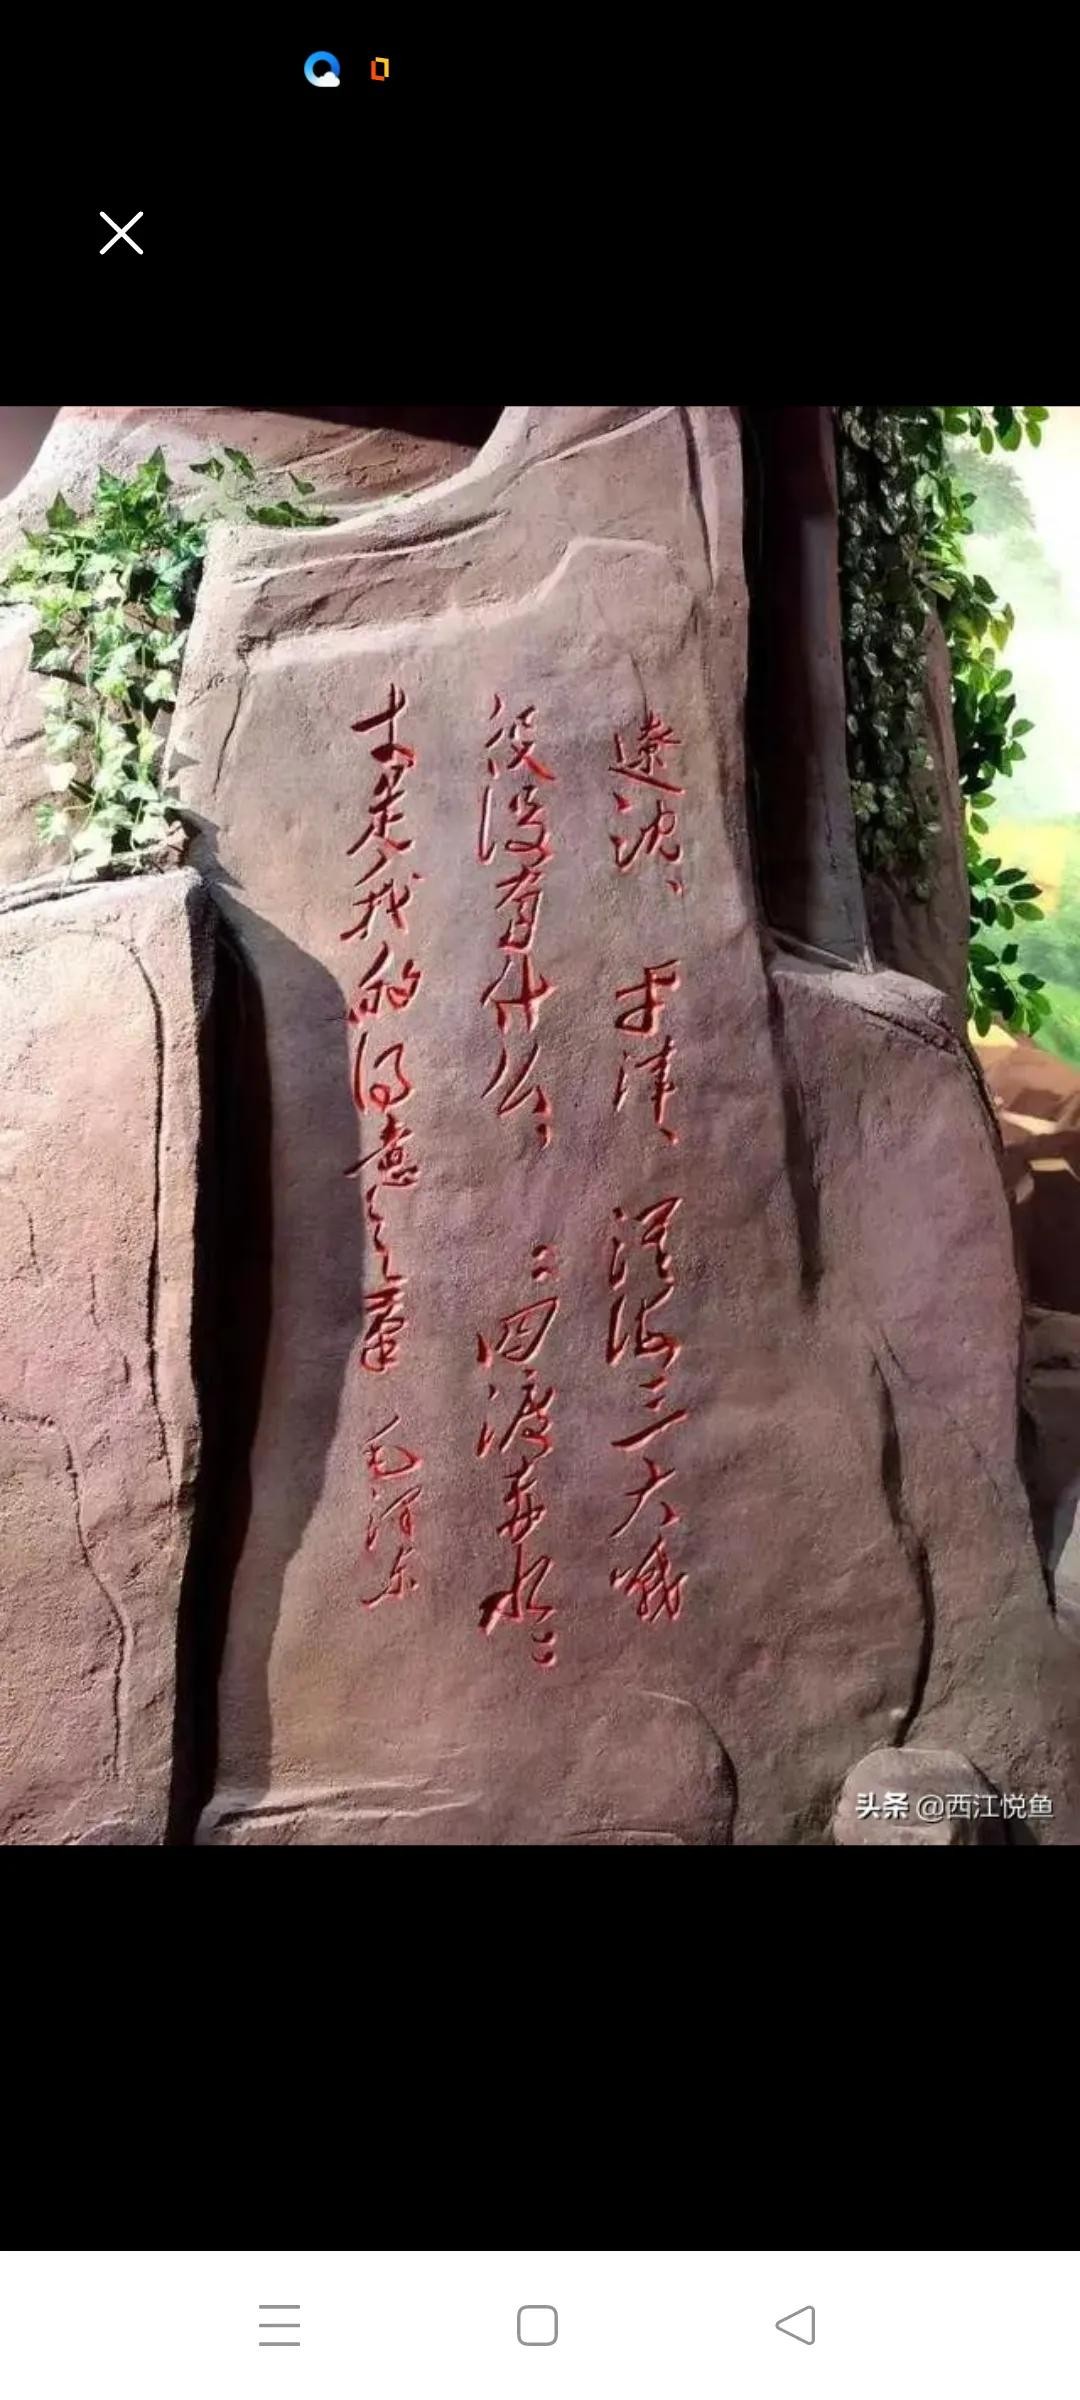 遼沈、平津、淮海三大戰
役没有什么，“四渡赤水”
才是我的得意之筆 毛泽东
头条 @西江悦鱼